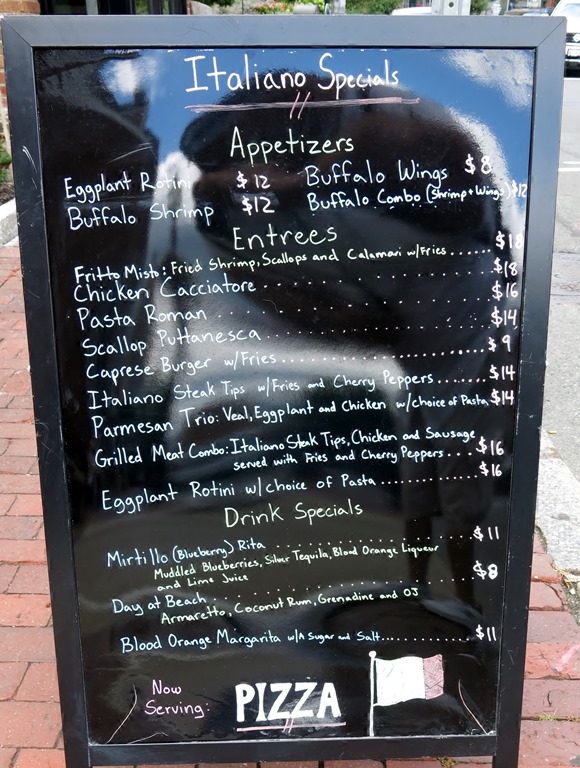 Italiano Specials
Appetizers
Eggplant Rotini $12 Buffalo Wings $8
Buffalo Shrimp $12 Buffalo Combo (Shrimp + Wings) $12
Entrees
Fritto Misto: Fried Shrimp, Scallops and Calamari w/Fries ..... $18
Chicken Cacciatore .......... $18
Pasta Roman .......... $16
Scallop Puttanesca .......... $14
Caprese Burger w/Fries .......... $9
Italiano Steak Tips w/Fries and Cherry Peppers ....... $14
Parmesan Trio: Veal, Eggplant and Chicken w/choice of Pasta $14
Grilled Meat Combo: Italiano Steak Tips, Chicken and Sausage
served with Fries and Cherry Peppers .... $16
Eggplant Rotini w/choice of Pasta .......... $16
Drink Specials
Mirtillo (Blueberry) Rita .......... $11
Muddled Blueberries, Silver Tequila, Blood Orange Liqueur
and Lime Juice
Day at Beach .......... $8
Armaretto, Coconut Rum, Grenadine and OJ
Blood Orange Margarita w/A Sugar and Salt .......... $11
Now
Serving: PIZZA